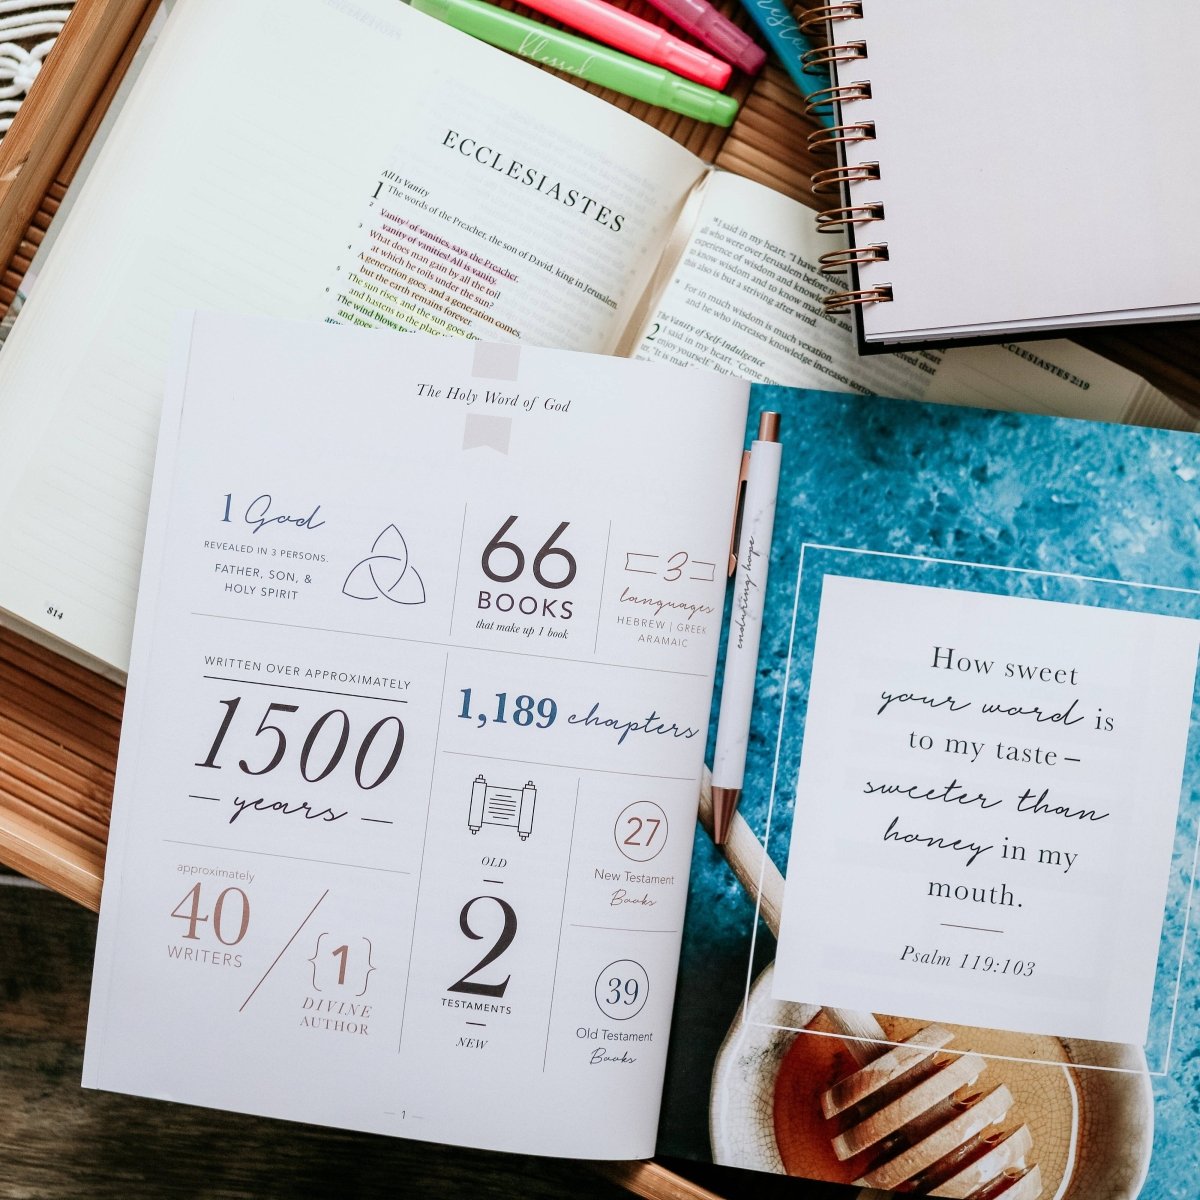 blessed
ECCLESIASTES
All Is Vanity
1 The words of the Preacher, the son of David, king in Jerusalem.
2 Vanity of vanities, says the Preacher,
vanity of vanities! All is vanity.
3 What does man gain by all the toil
at which he toils under the sun?
4 A generation goes, and a generation comes,
but the earth remains forever.
5 The sun rises, and the sun goes down,
and hastens to the place
6 The wind blows to
and goes
814
I said in my heart, "I have acquired
all who were over Jerusalem before me,
experience of wisdom and knowledge
to know wisdom and to know madness
this also is but a striving after wind.
18 For in much wisdom is much vexation,
and he who increases knowledge increases sorrow.
The Vanity of Self-Indulgence
2 I said in my heart, "Come now,
enjoy yourself." But
ter, "It is mad,"
heart
ECCLESIASTES 2:19
The Holy Word of God
1 God
REVEALED IN 3 PERSONS.
FATHER, SON, &
HOLY SPIRIT
66
BOOKS
that make up 1 book
3
languages
HEBREW | GREEK
ARAMAIC
WRITTEN OVER APPROXIMATELY
1500
years
1,189 chapters
approximately
40
WRITERS
{1}
DIVINE
AUTHOR
OLD
2
TESTAMENTS
NEW
27
New Testament
Books
39
Old Testament
Books
1
enduring hope
How sweet
your word is
to my taste–
sweeter than
honey in my
mouth.
Psalm 119:103